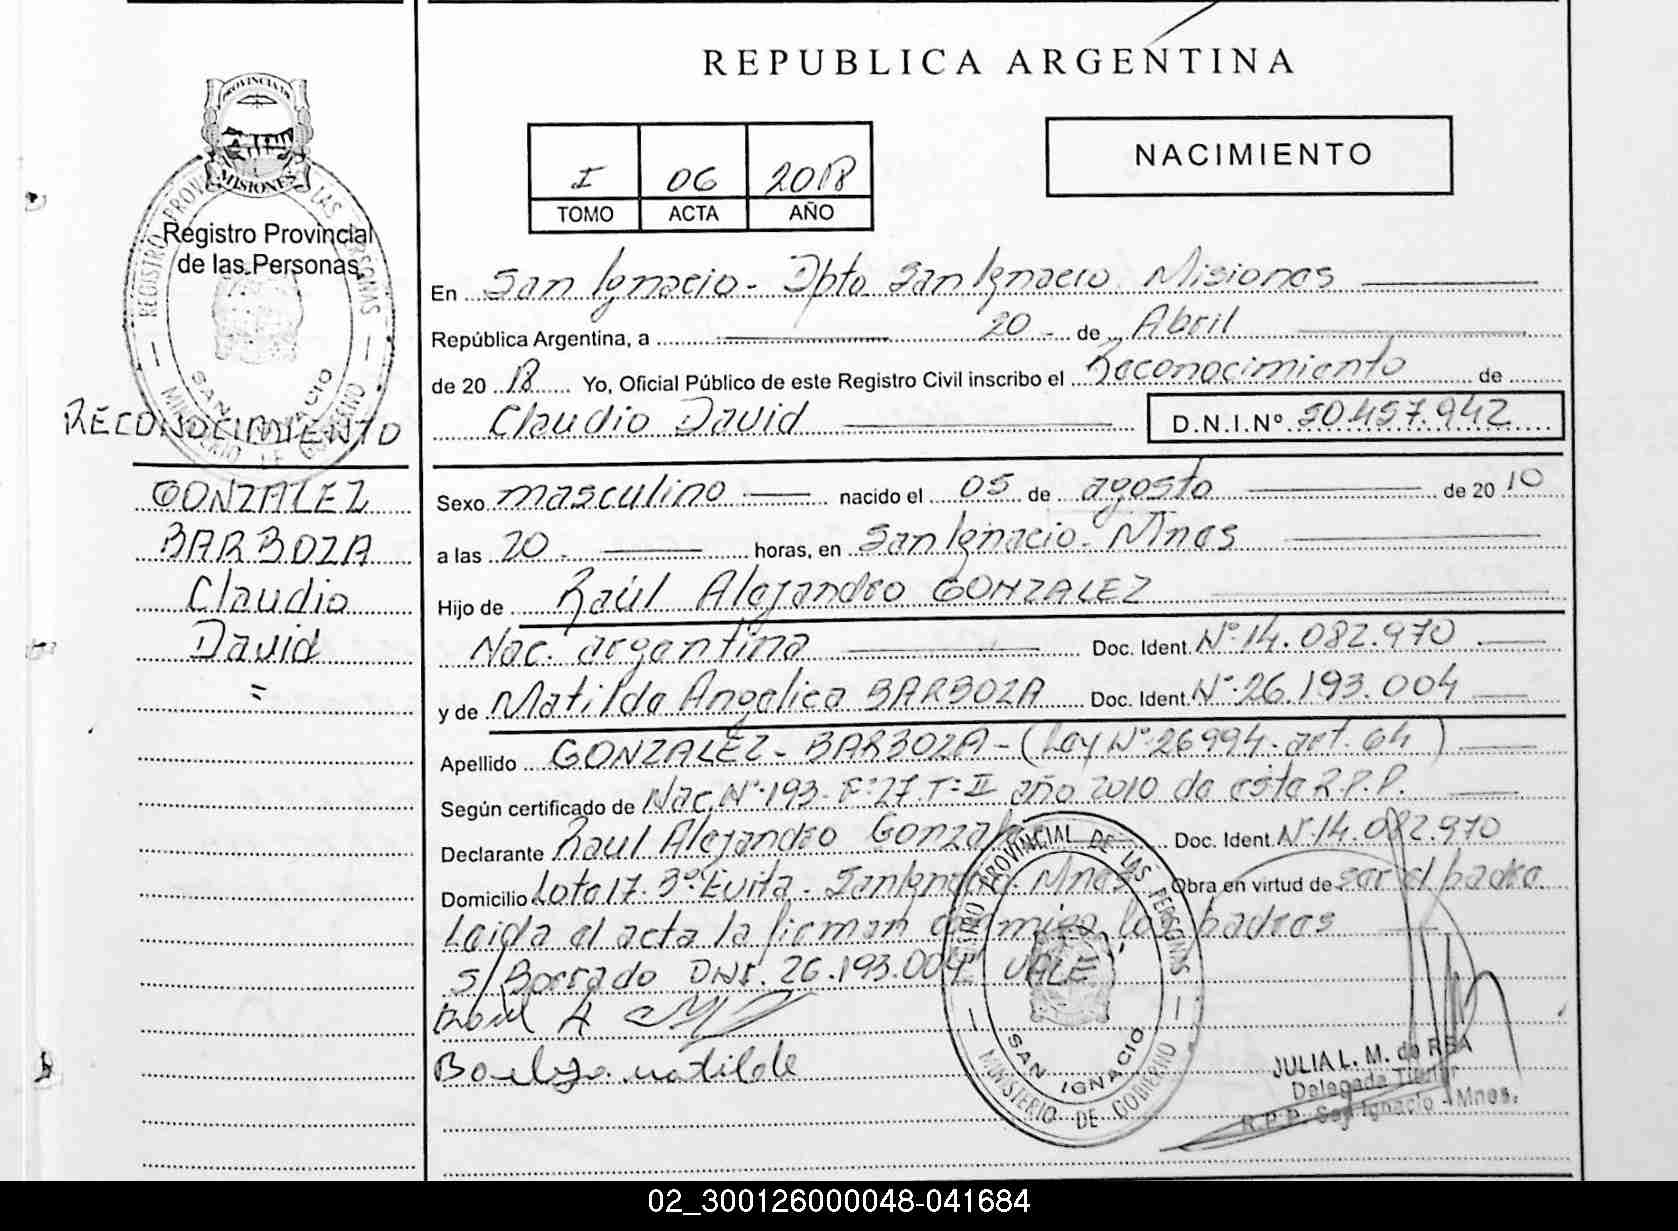 REPUBLICA ARGENTINA
PROVINCIA DE
MISIONES
Registro Provincial
de las Personas
I 06 2018
TOMO ACTA AÑO
NACIMIENTO
En San Ignacio - Dpto San Ignacio Misiones
República Argentina, a 20 - de Abril
de 20 18 Yo, Oficial Público de este Registro Civil inscribo el Reconocimiento de
Claudio David D.N.I.Nº 50.457.942
RECONOCIMIENTO
GONZALEZ
BARBOZA
Claudio
David
=
Sexo masculino nacido el 05 de agosto de 20 10
a las 20 - horas, en San Ignacio - Mnes
Hijo de Raúl Alejandro GONZALEZ
Nac. argentina Doc. Ident. Nº 14.082.970
y de Matilda Angelica BARBOZA Doc. Ident. Nº 26.193.004
Apellido GONZALEZ - BARBOZA - (Ley Nº 26994 - art. 64)
Según certificado de Nac. Nº 193 - F: 27. T: II año 2010 de este R.P.P.
Declarante Raul Alejandro Gonzalez Doc. Ident Nº 14.082.970
Domicilio Lote 17. Bº Evita - San Ignacio - Mnes Obra en virtud de ser el padre
Leida el acta la firman conmigo los padres
S/Borrado DNI. 26.193.004 VALE
Raul A
matilde
REGISTRO PROVINCIAL DE LAS PERSONAS
SAN IGNACIO
MINISTERIO DE GOBIERNO
JULIA L. M. de REA
Delegada Titular
R.P.P. San Ignacio - Mnes.
02_300126000048-041684